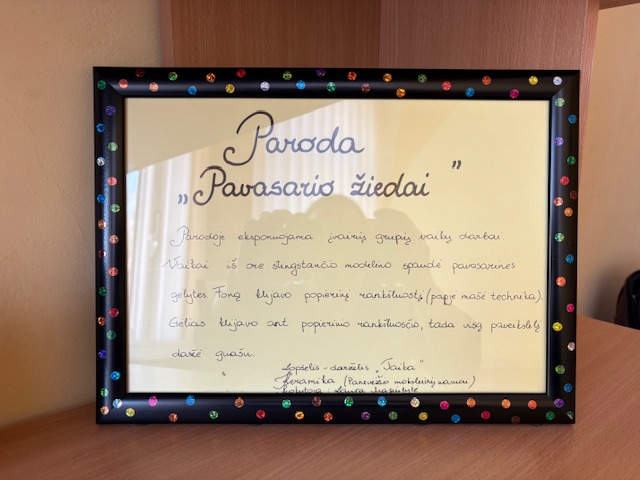 Paroda
„Pavasario žiedai"
Parodoje eksponuojama įvairių grupių vaikų darbai.
Vaikai iš ore stingstančio modelino spaudė pavasarines
gėlytes. Foną klijavo popierinį rankšluostį (papje mašė technika).
Gėlias klijavo ant popierinio rankšluosčio, tada visą paveikslėlį
dažė guašu.
Lopšelis-darželis „Taika"
Keramika (Panevėžio moksleivių namai)
Laura